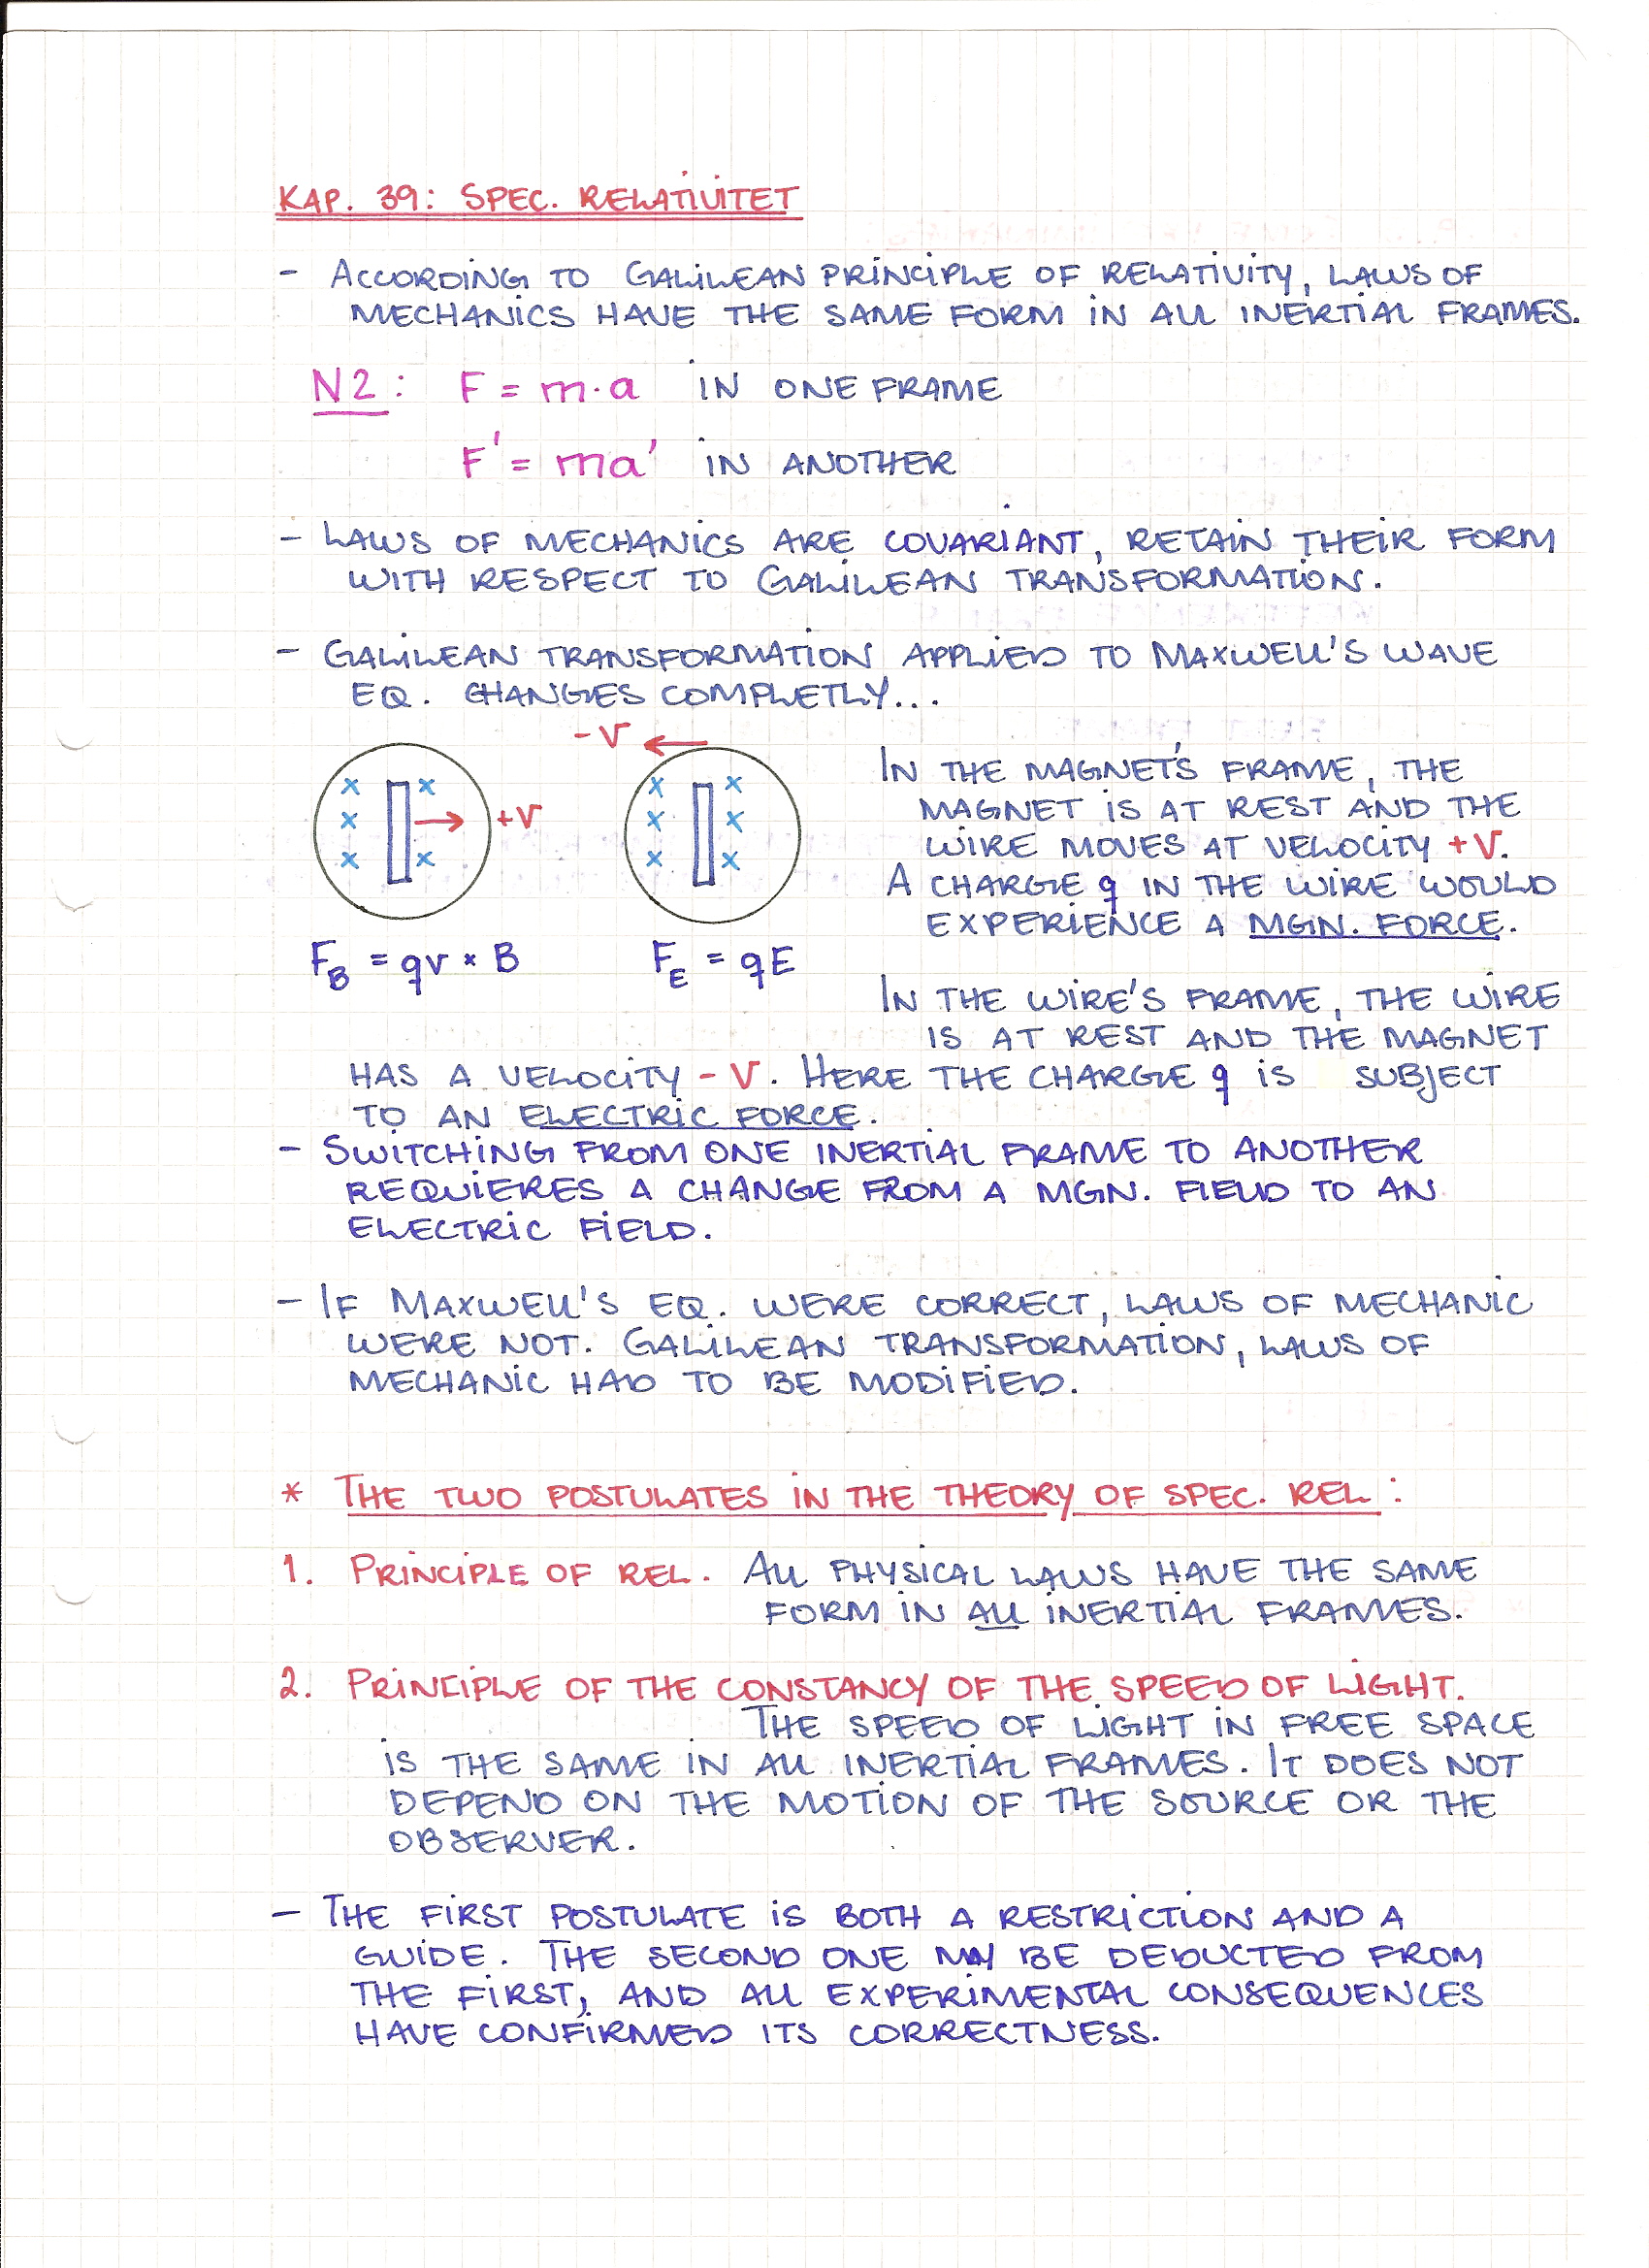 KAP. 39: SPEC. RELATIVITET
- ACCORDING TO GALILEAN PRINCIPLE OF RELATIVITY, LAWS OF
MECHANICS HAVE THE SAME FORM IN ALL INERTIAL FRAMES.
N2: F = m·a IN ONE FRAME
F' = ma' IN ANOTHER
- LAWS OF MECHANICS ARE COVARIANT, RETAIN THEIR FORM
WITH RESPECT TO GALILEAN TRANSFORMATION.
- GALILEAN TRANSFORMATION APPLIED TO MAXWELL'S WAVE
EQ. CHANGES COMPLETLY...
-V
x x x x
x +V x x
x x x x
F_B = qv × B F_E = qE
IN THE MAGNET'S FRAME, THE
MAGNET IS AT REST AND THE
WIRE MOVES AT VELOCITY +V.
A CHARGE q IN THE WIRE WOULD
EXPERIENCE A MGN. FORCE.
IN THE WIRE'S FRAME, THE WIRE
IS AT REST AND THE MAGNET
HAS A VELOCITY -V. HERE THE CHARGE q IS SUBJECT
TO AN ELECTRIC FORCE.
- SWITCHING FROM ONE INERTIAL FRAME TO ANOTHER
REQUIERES A CHANGE FROM A MGN. FIELD TO AN
ELECTRIC FIELD.
- IF MAXWELL'S EQ. WERE CORRECT, LAWS OF MECHANIC
WERE NOT. GALILEAN TRANSFORMATION, LAWS OF
MECHANIC HAD TO BE MODIFIED.
* THE TWO POSTULATES IN THE THEORY OF SPEC. REL:
1. PRINCIPLE OF REL. ALL PHYSICAL LAWS HAVE THE SAME
FORM IN ALL INERTIAL FRAMES.
2. PRINCIPLE OF THE CONSTANCY OF THE SPEED OF LIGHT.
THE SPEED OF LIGHT IN FREE SPACE
IS THE SAME IN ALL INERTIAL FRAMES. IT DOES NOT
DEPEND ON THE MOTION OF THE SOURCE OR THE
OBSERVER.
- THE FIRST POSTULATE IS BOTH A RESTRICTION AND A
GUIDE. THE SECOND ONE MAY BE DEDUCTED FROM
THE FIRST, AND ALL EXPERIMENTAL CONSEQUENCES
HAVE CONFIRMED ITS CORRECTNESS.